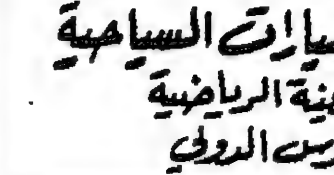 يارات السياحية
ية الرياضية
يس الدولي